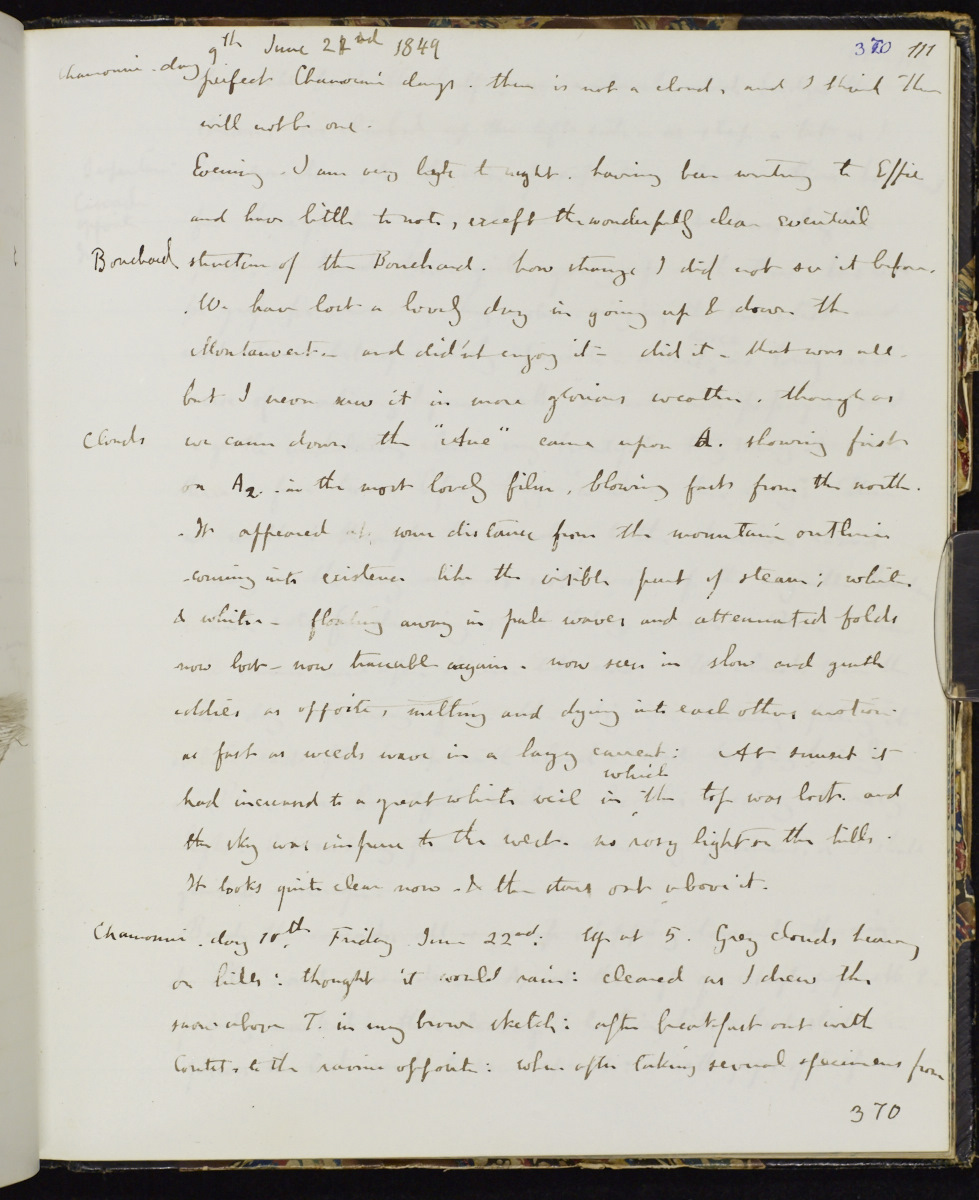 9th June 21nd 1849
370 111
Chamouni. day
perfect Chamouni days. there is not a cloud, and I think there
will not be one.
Evening. I am very late to night. having been writing to Effie
and have little to note, except the wonderfully clear
Bouchard structure of the Bouchard. how strange I did not see it before.
. We have lost a lovely day in going up & down the
Montanvert - and didn't enjoy it - did it - that was all.
but I never saw it in more glorious weather. though as
Clouds we came down the "Aue" came upon A. showing first
on A2. in the most lovely film, blowing fast from the north.
. It appeared at some distance from the mountain outline
- coming into existence like the visible part of steam; white.
& whiter - floating away in pale waves and attenuated folds
now lost - now traceable again - now seen in slow and gentle
eddies as opposite, melting and dying into each others motion
as fast as weeds wave in a lazy current: At sunset it
had increased to a great white veil in which the top was lost. and
the sky was impure to the west. no rosy light on the hills.
It looks quite clear now - & the stars out above it.
Chamouni. day 10th. Friday. June 22nd. Up at 5. Grey clouds heavy
on hills: thought it would rain: cleared as I drew the
snow above T. in my brown sketch: after breakfast out with
Coutet to the ravine opposite: when after taking several specimens from
370